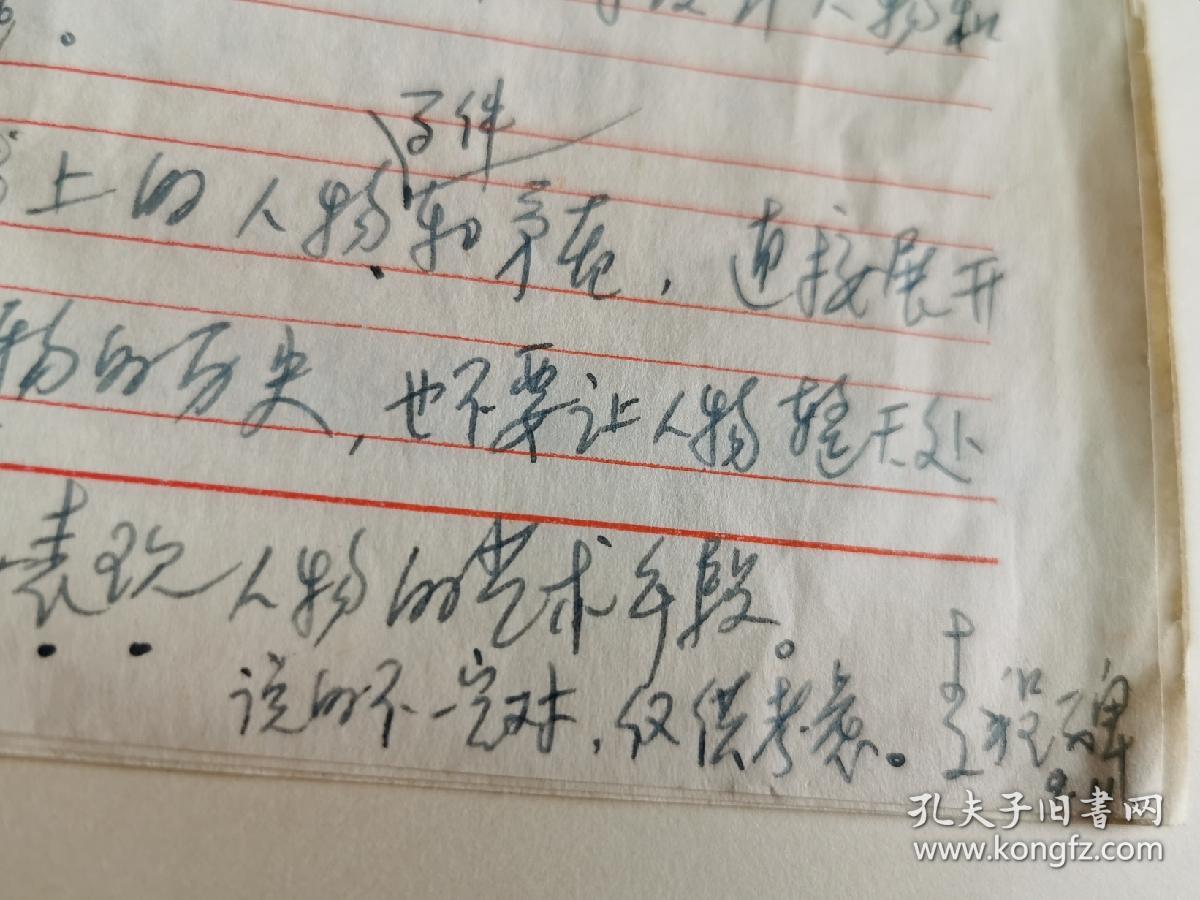 人物和
事件
上的人物和矛盾，直接展开
物的历史，也不要让人物整天处
表现人物的艺术手段。
说的不一定对，仅供考虑。
9.11
孔夫子旧書网
www.kongfz.com